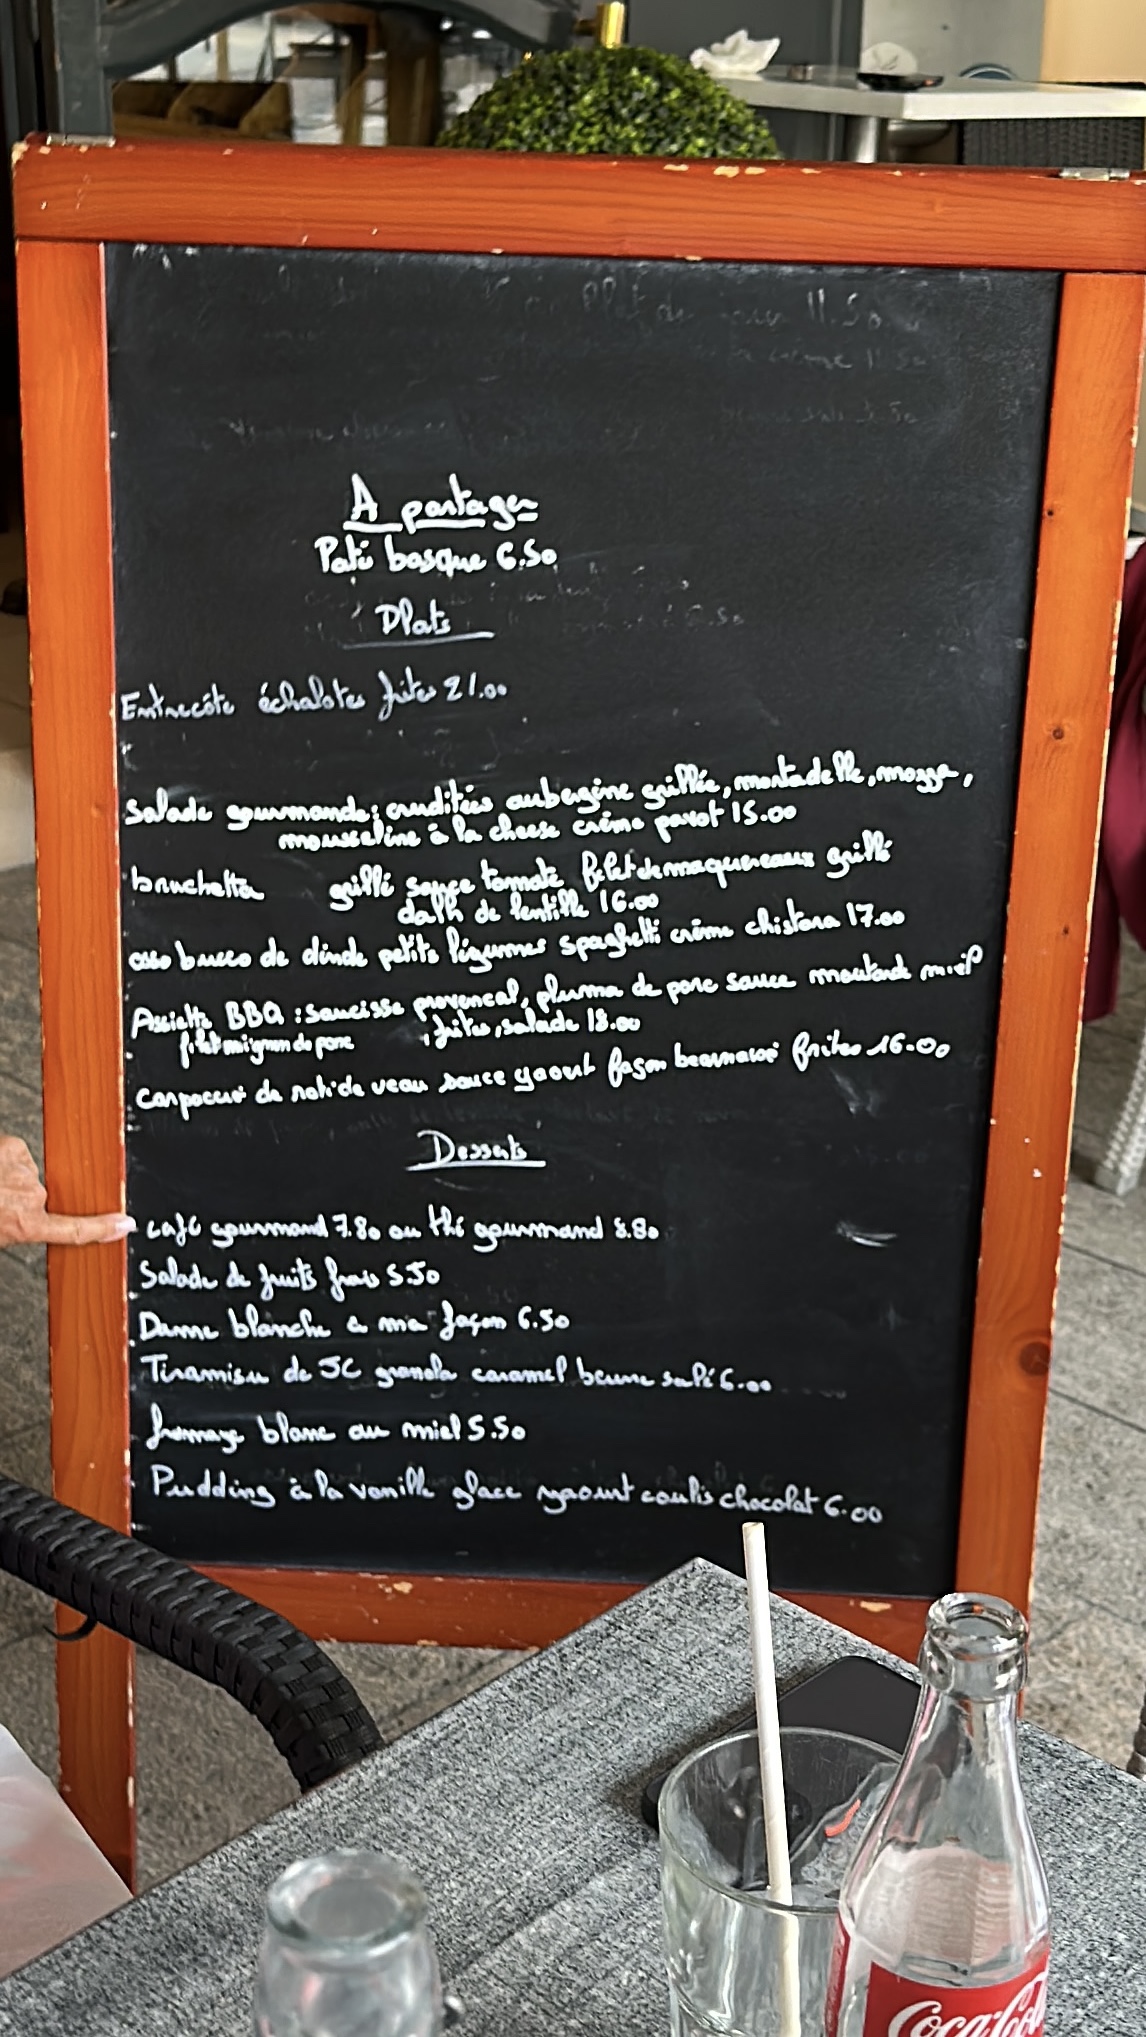 Plat du jour 11.50
A partager
Paté basque 6.50
Plats
Entrecôte échalotes frites 21.00
Salade gourmande; crudités aubergine grillée, mortadelle, mozza,
mousseline à la cheese crème pavot 15.00
bruchetta grillé sauce tomate filet de maquereaux grillé
dalh de lentille 16.00
osso bucco de dinde petits légumes spaghetti crème chistora 17.00
Assiette BBQ : saucisse provencal, pluma de porc sauce moutarde miel
filet mignon de porc , frites, salade 18.00
carpaccio de roti de veau sauce yaourt façon bearnaise frites 16.00
Desserts
café gourmand 7.80 ou thé gourmand 8.80
Salade de fruits frais 5.50
Dame blanche a ma façon 6.50
Tiramisu de JC granola caramel beurre salé 6.00
fromage blanc au miel 5.50
Pudding à la vanille glace yaourt coulis chocolat 6.00
Coca-Cola